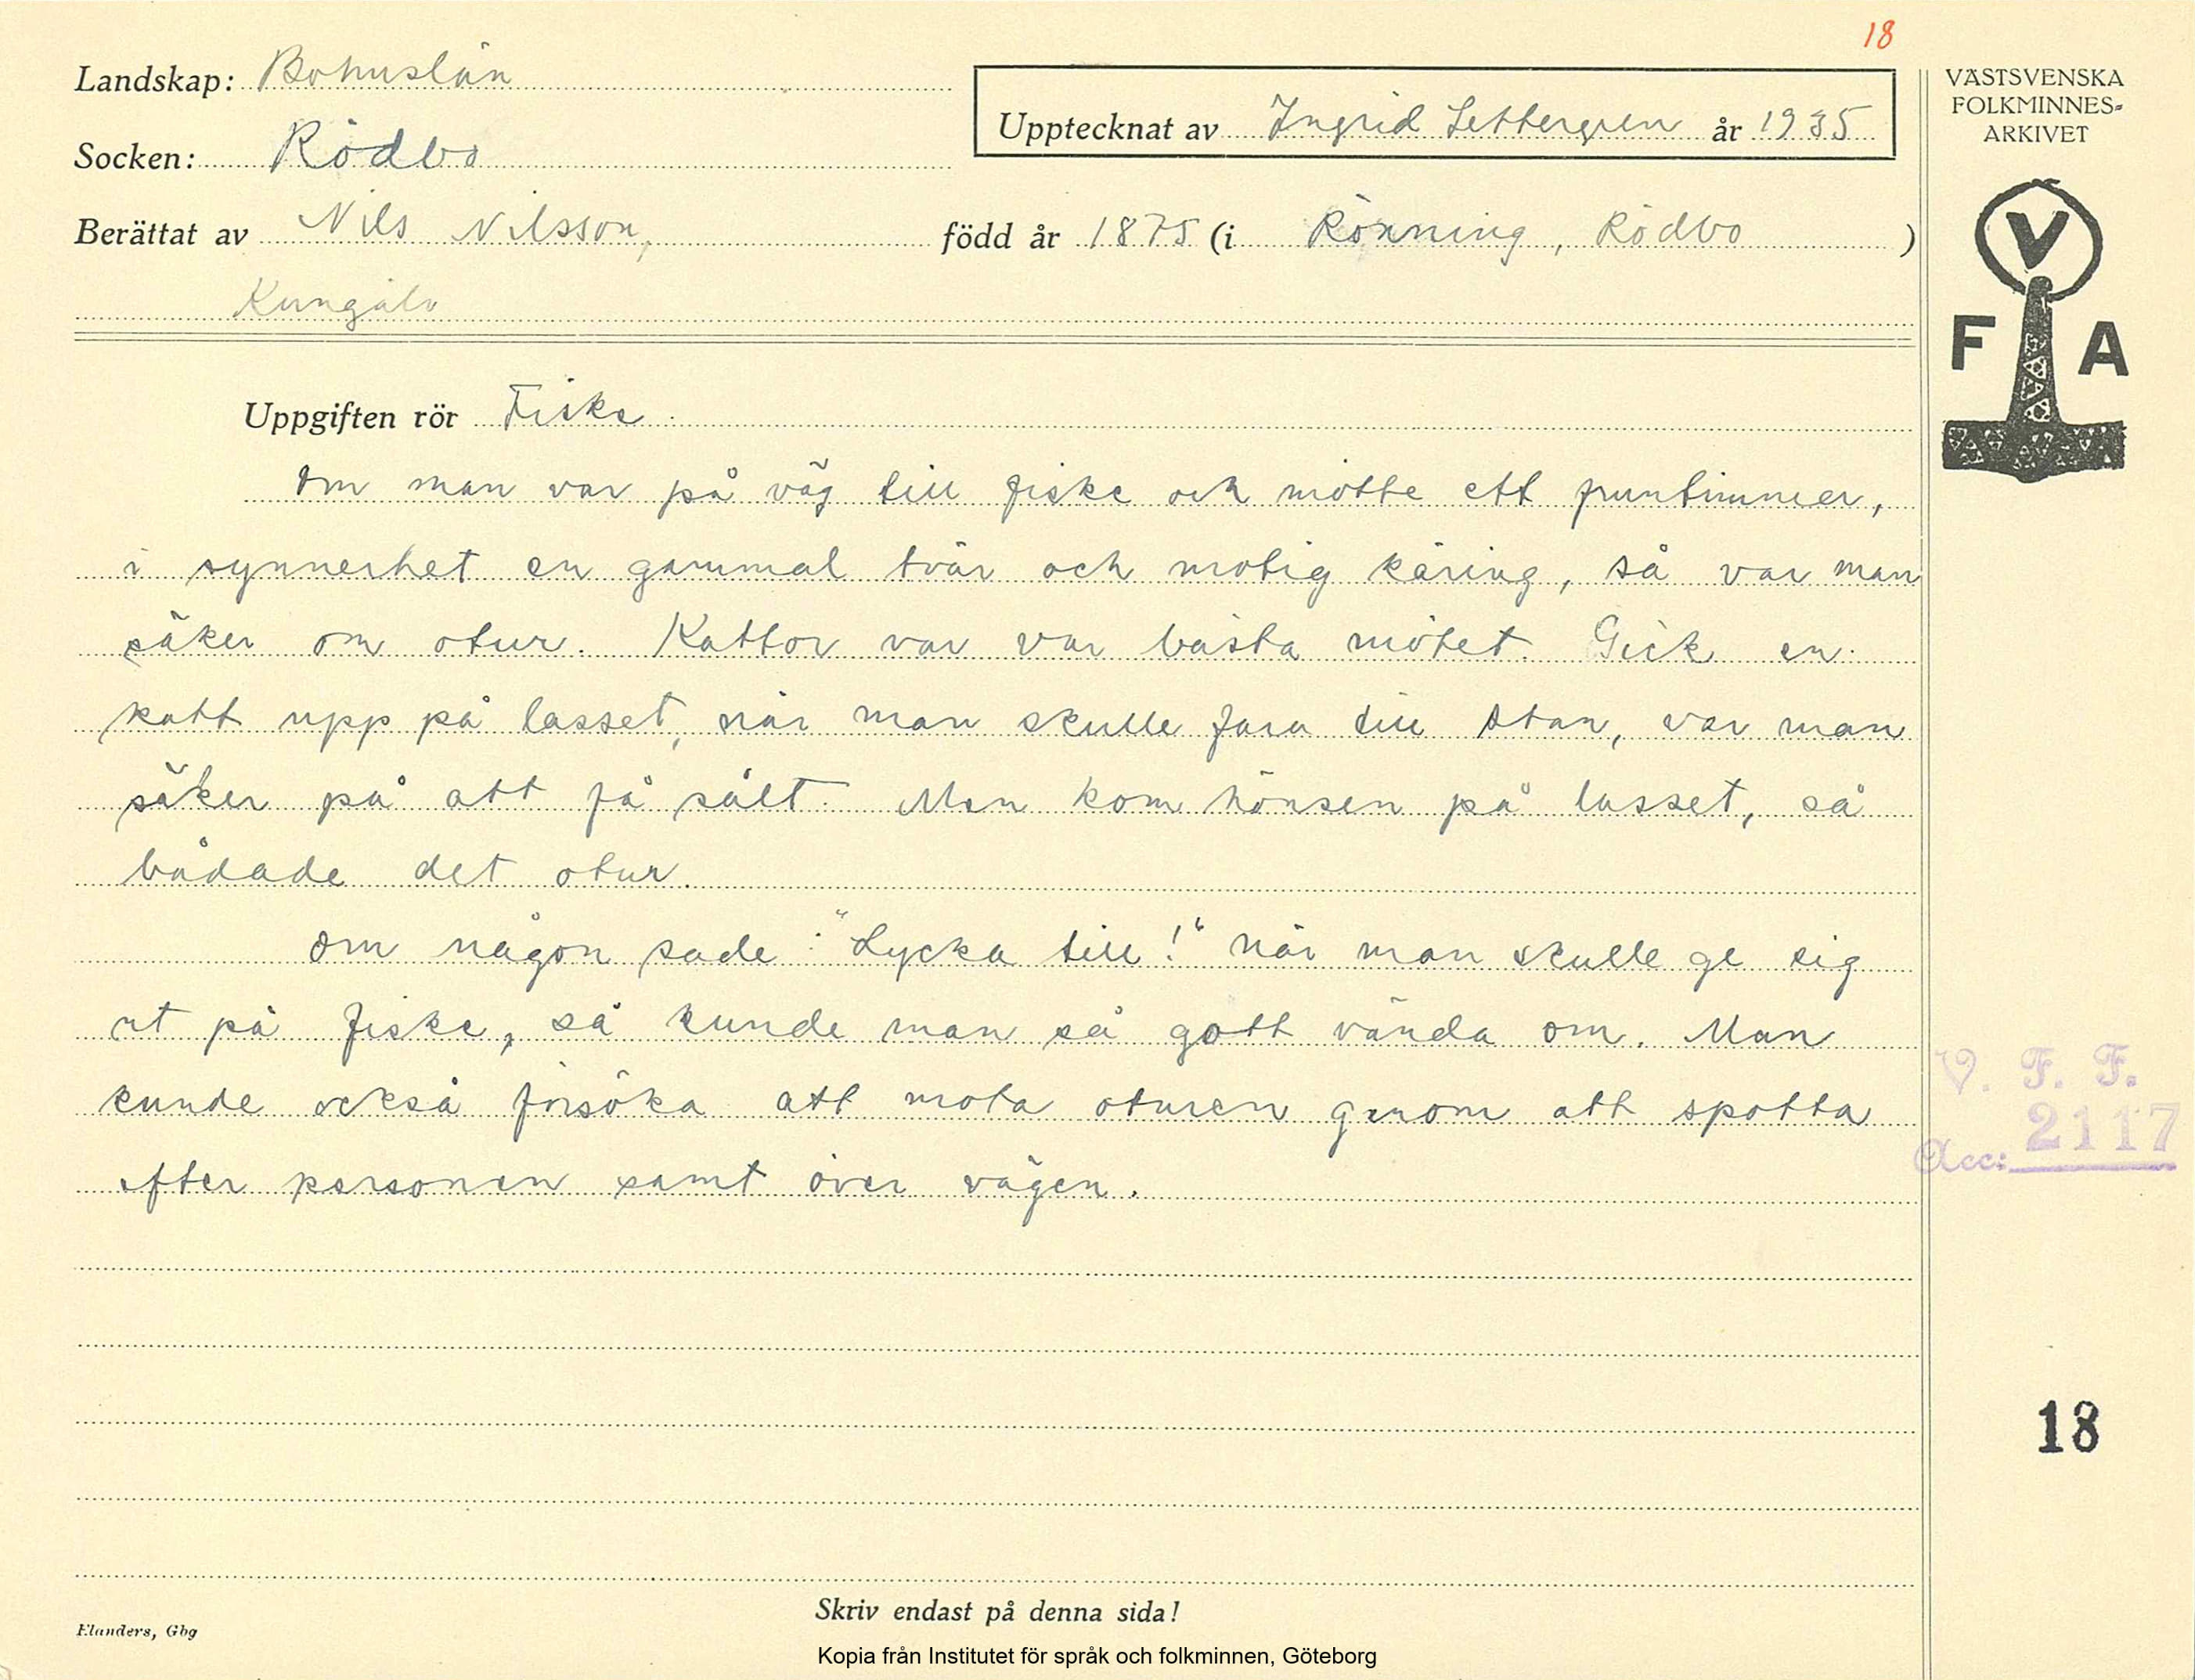 18
Landskap: Bohuslän
Socken: Rödbo
Upptecknat av Ingrid Settergren år 1935
VÄSTSVENSKA
FOLKMINNES-
ARKIVET
Berättat av Nils Nilsson, född år 1875 (i Rönning, Rödbo)
Kungälv
V
F A
Uppgiften rör Fiske.
Om man var på väg till fiske och mötte ett fruntimmer,
i synnerhet en gammal tvär och motig käring, så var man
säker om otur. Kattor var var bästa mötet. Gick en
katt upp på lasset, när man skulle fara till stan, var man
säker på att få sålt. Men kom hönsen på lasset, så
bådade det otur.
Om någon sade: "Lycka till!" när man skulle ge sig
ut på fiske, så kunde man så gott vända om. Man
kunde också försöka att mota oturen genom att spotta
efter personen samt över vägen.
V. F. F.
Acc: 2117
18
Skriv endast på denna sida!
Elanders, Gbg
Kopia från Institutet för språk och folkminnen, Göteborg